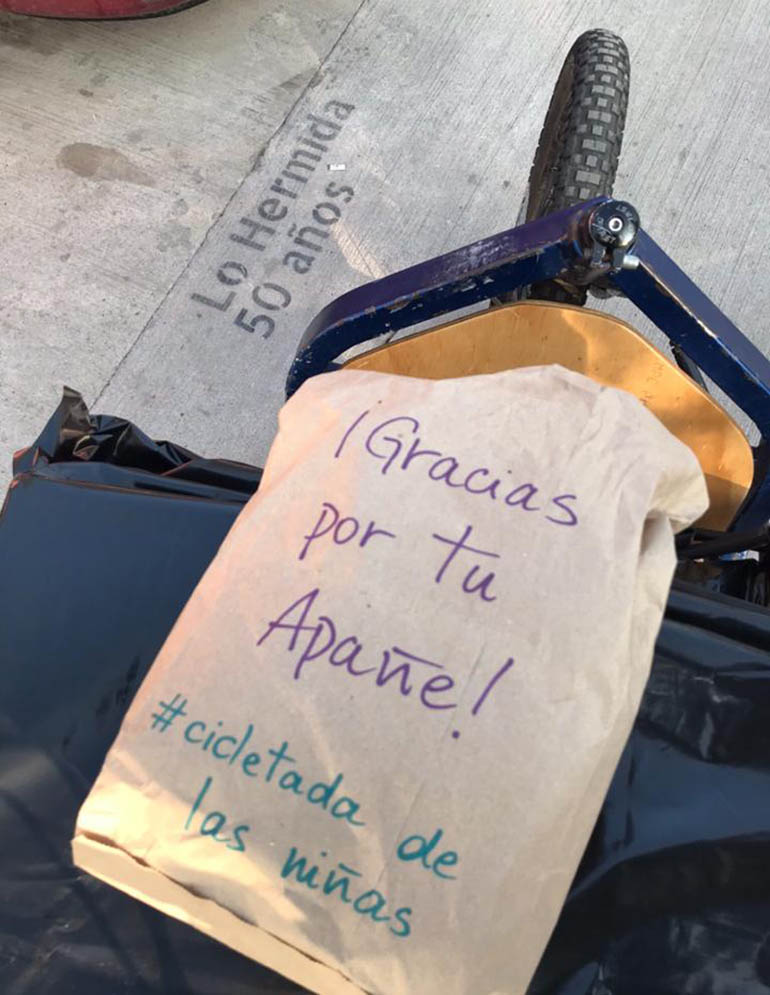 Lo Hermida
50 años
¡Gracias
por tu
Apañe!
#cicletada de
las niñas